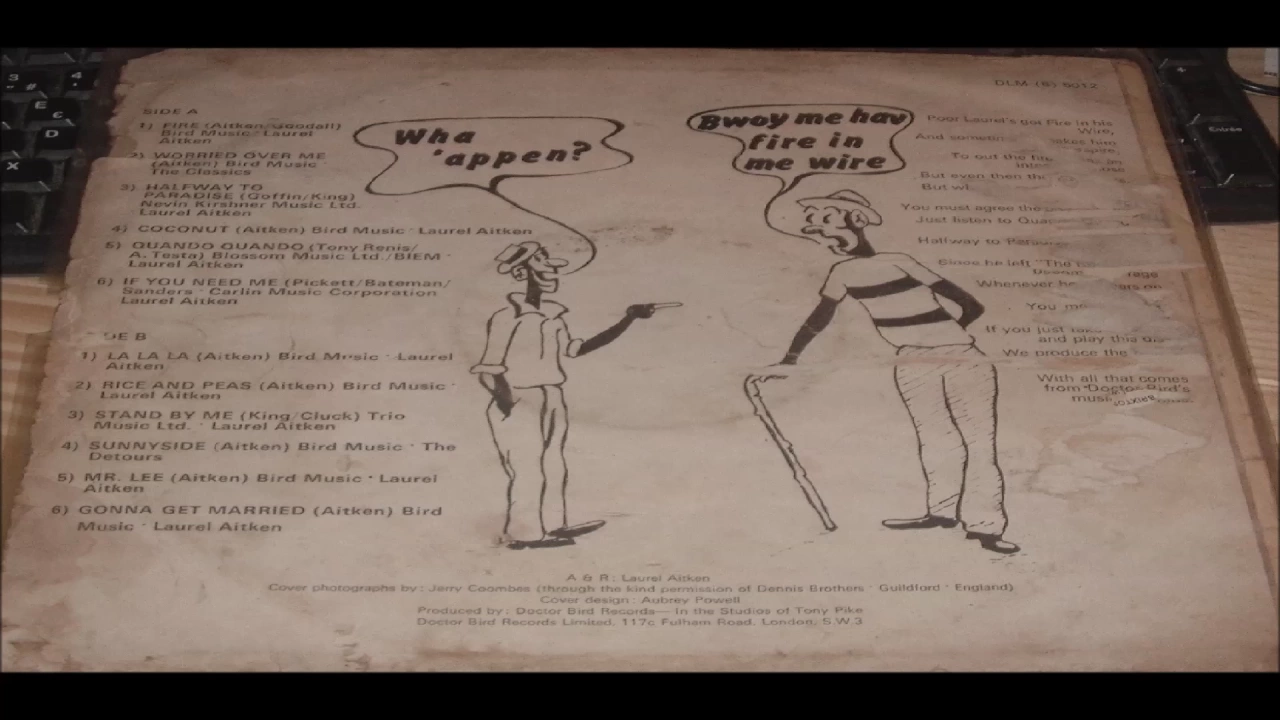 DLM (S) 5012
SIDE A
1) FIRE (Aitken/Goodall)
Bird Music · Laurel
Aitken
2) WORRIED OVER ME
(Aitken) Bird Music ·
The Classics
3) HALFWAY TO
PARADISE (Goffin/King)
Nevin Kirshner Music Ltd.
Laurel Aitken
4) COCONUT (Aitken) Bird Music · Laurel Aitken
5) QUANDO QUANDO (Tony Renis/
A. Testa) Blossom Music Ltd./BIEM ·
Laurel Aitken
6) IF YOU NEED ME (Pickett/Bateman/
Sanders · Carlin Music Corporation
Laurel Aitken
DE B
1) LA LA LA (Aitken) Bird Music · Laurel
Aitken
2) RICE AND PEAS (Aitken) Bird Music ·
Laurel Aitken
3) STAND BY ME (King/Cluck) Trio
Music Ltd. · Laurel Aitken
4) SUNNYSIDE (Aitken) Bird Music · The
Detours
5) MR. LEE (Aitken) Bird Music · Laurel
Aitken
6) GONNA GET MARRIED (Aitken) Bird
Music · Laurel Aitken
Wha
'appen?
Bwoy me hav
fire in
me wire
Poor Laurel's got Fire in his
Wire,
And
To put the
But even then
But
You must agree the
Just listen to
Halfway to
Since he left "The
Whenever he
You
If you just
and play this
We produce the
With all that comes
from "Doctor Bird's
A & R: Laurel Aitken
Cover photographs by: Jerry Coombes (through the kind permission of Dennis Brothers · Guildford · England)
Cover design: Aubrey Powell
Produced by: Doctor Bird Records — In the Studios of Tony Pike
Doctor Bird Records Limited, 117c Fulham Road, London, S.W.3
3
#
4
E
€
D
X
+
Entrée